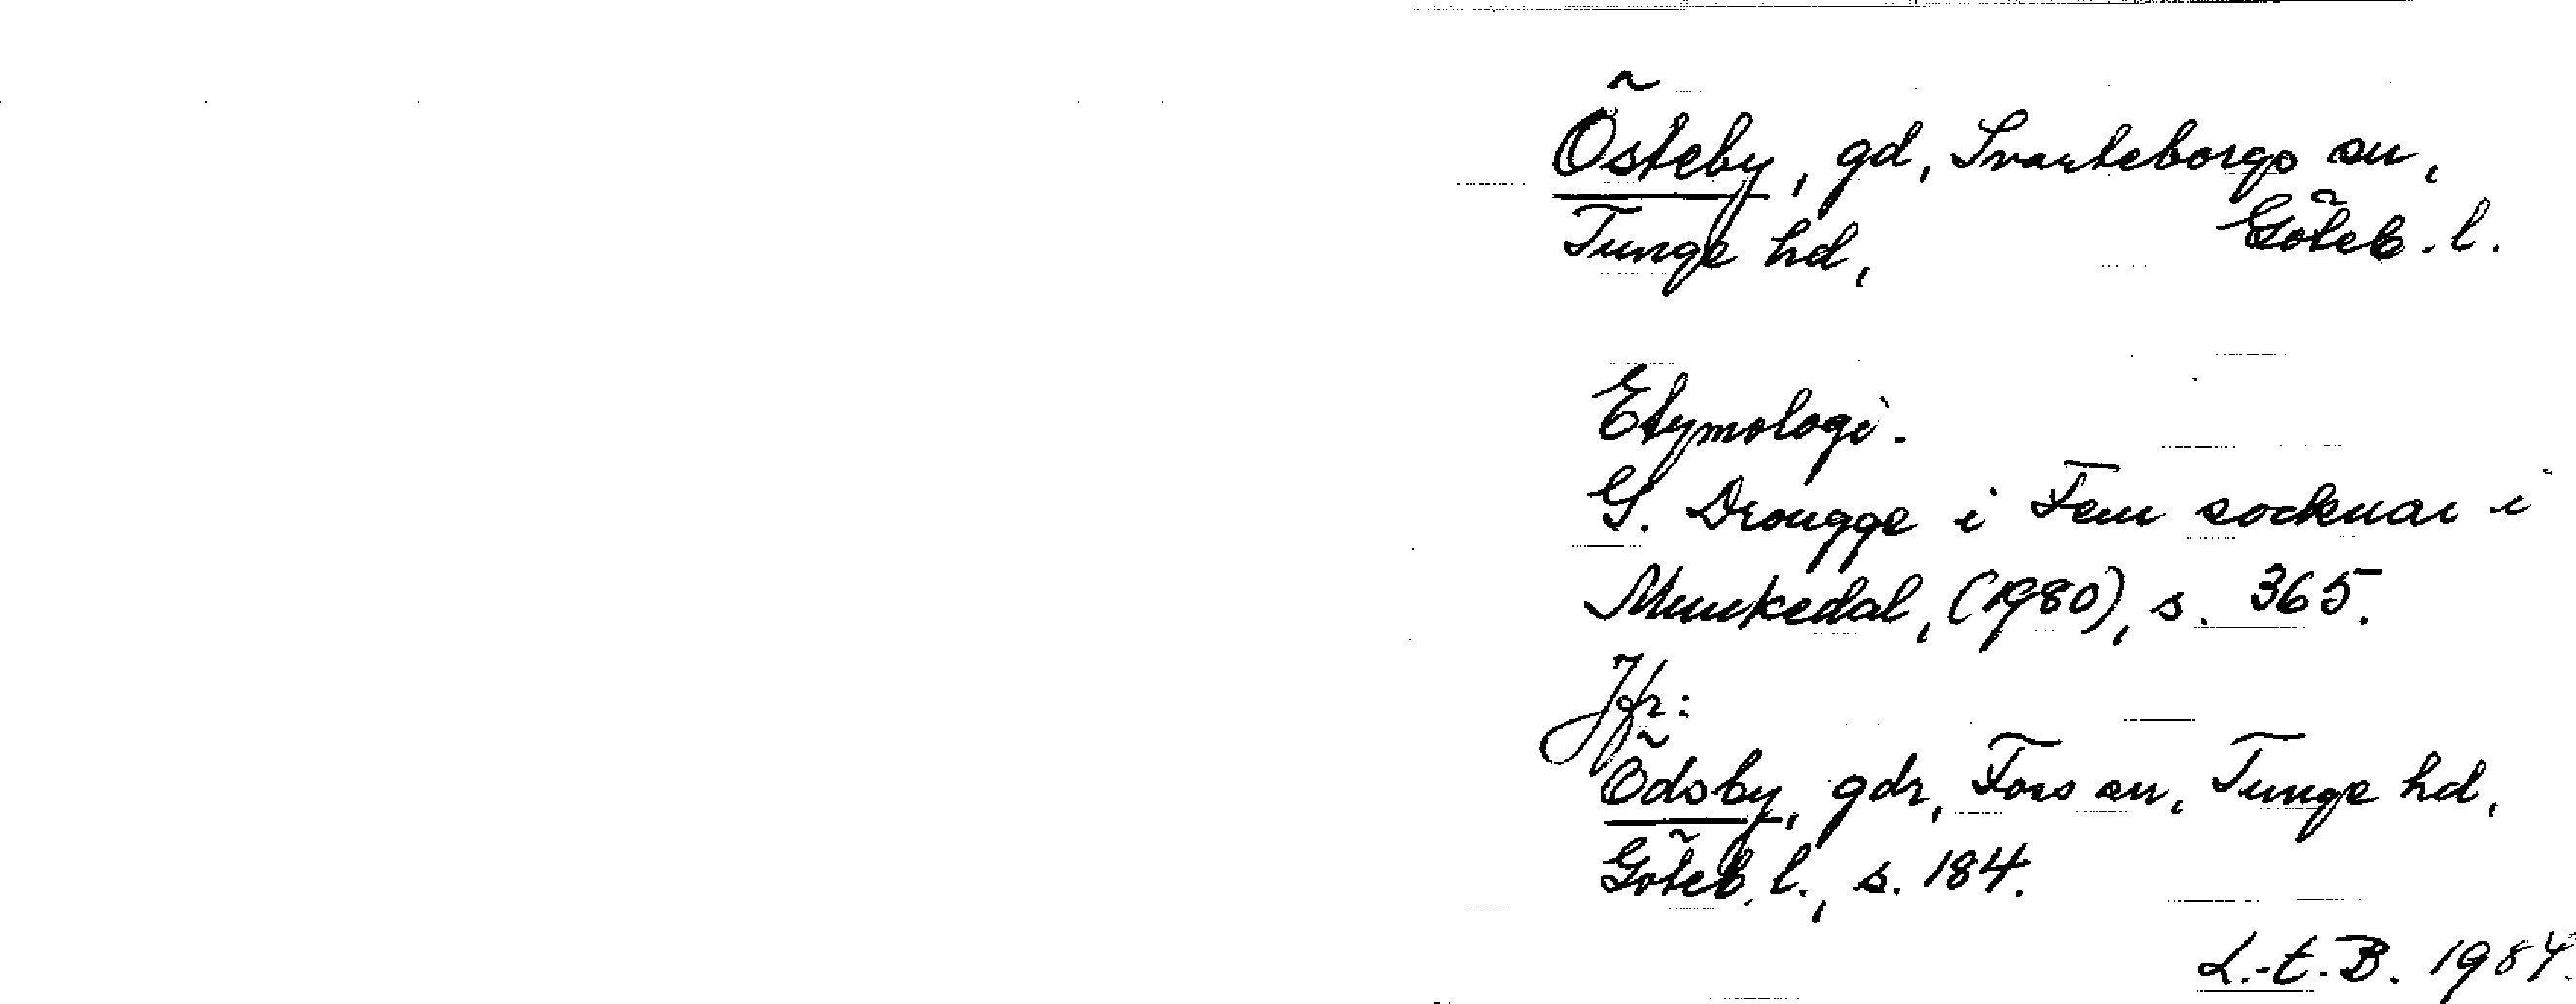 Östeby, gd, Svarteborgs sn,
Tunge hd, Göteb. l.
Etymologi.
G. Drougge i Fem socknar i
Munkedal, (1980), s. 365.
Jfr:
Ödsby, gdr, Foss sn, Tunge hd,
Göteb. l., s. 184.
L.-t. B. 1984.